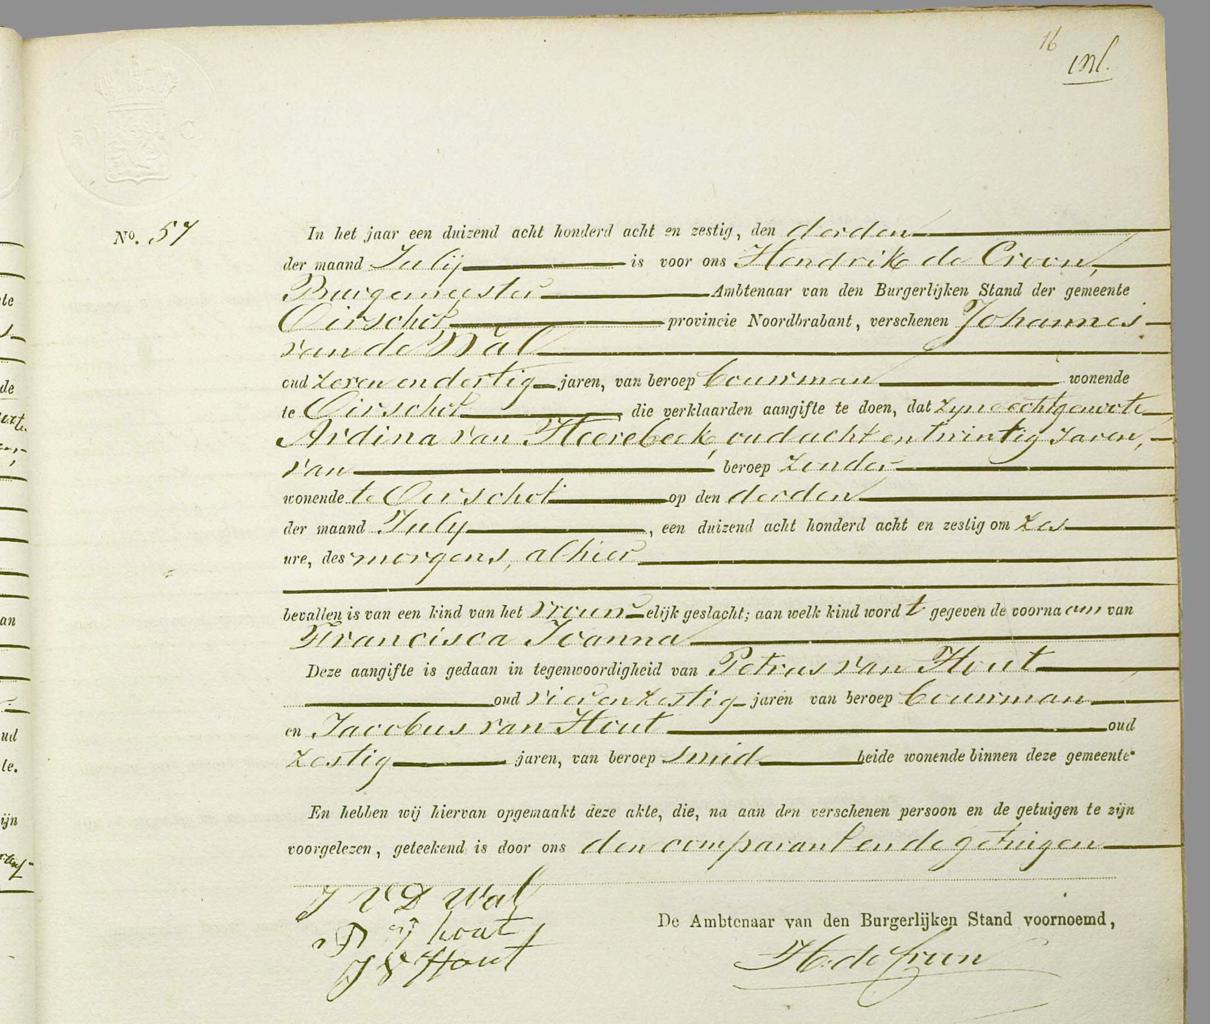 16
No. 57
In het jaar een duizend acht honderd acht en zestig, den derden
der maand July is voor ons Hendrik de Croon,
Burgemeester Ambtenaar van den Burgerlijken Stand der gemeente
Oirschot provincie Noordbrabant, verschenen Johannes
van de Wal
oud zeven en dertig jaren, van beroep bouwman wonende
te Oirschot, die verklaarden aangifte te doen, dat zyne echtgenote
Ardina van Heerebeek, oud acht en twintig Jaren,
van beroep zonder
wonende te Oirschot op den derden
der maand July, een duizend acht honderd acht en zestig om zes
ure, des morgens, alhier
bevallen is van een kind van het vrouwelijk geslacht; aan welk kind wordt gegeven de voornaam van
Francisca Joanna
Deze aangifte is gedaan in tegenwoordigheid van Petrus van Hout
oud vierenzestig jaren van beroep bouwman
en Jacobus van Hout oud
zestig jaren, van beroep smid beide wonende binnen deze gemeente
En hebben wij hiervan opgemaakt deze akte, die, na aan den verschenen persoon en de getuigen te zijn
voorgelezen, geteekend is door ons den comparant en de getuigen
J V D Wal
hout
J V Hout
De Ambtenaar van den Burgerlijken Stand voornoemd,
H. de Croon
50 C